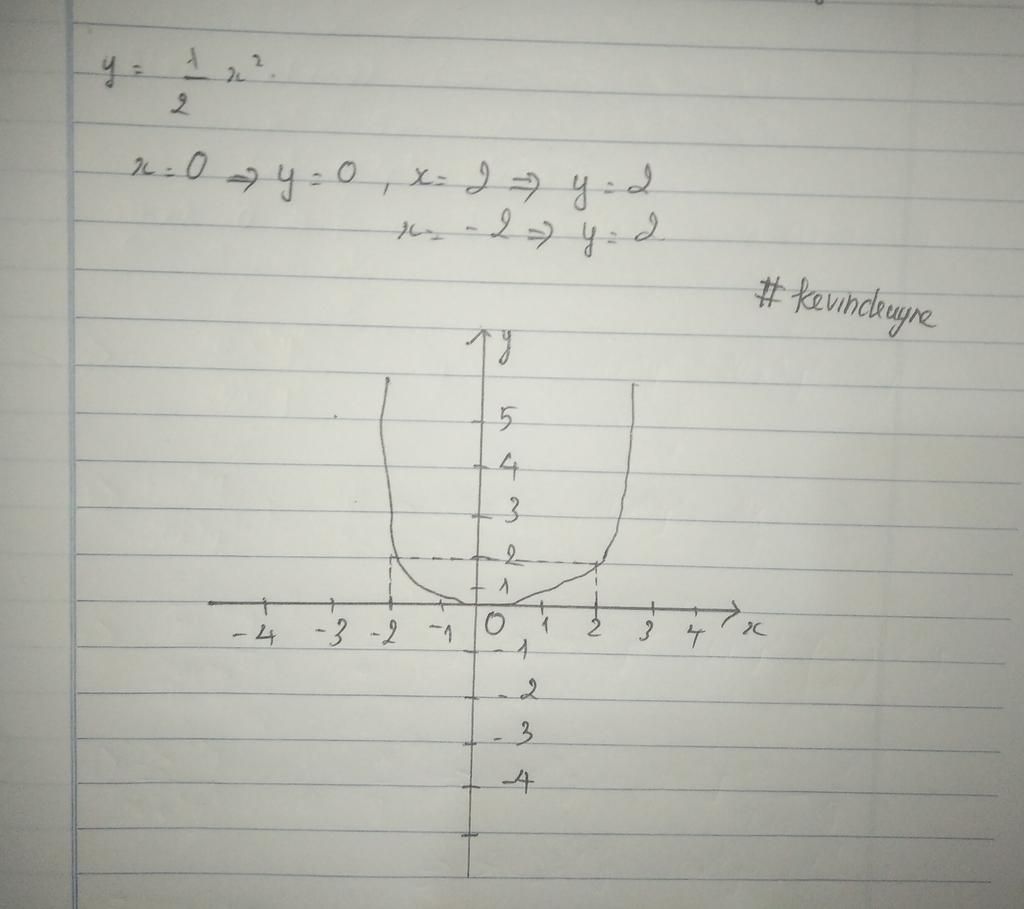 y = 1/2 x².
x = 0 ⇒ y = 0, x = 2 ⇒ y = 2
x = -2 ⇒ y = 2
# kevindeuyne
y
5
4
3
2
1
-4 -3 -2 -1 0 1 2 3 4 x
-1
-2
-3
-4